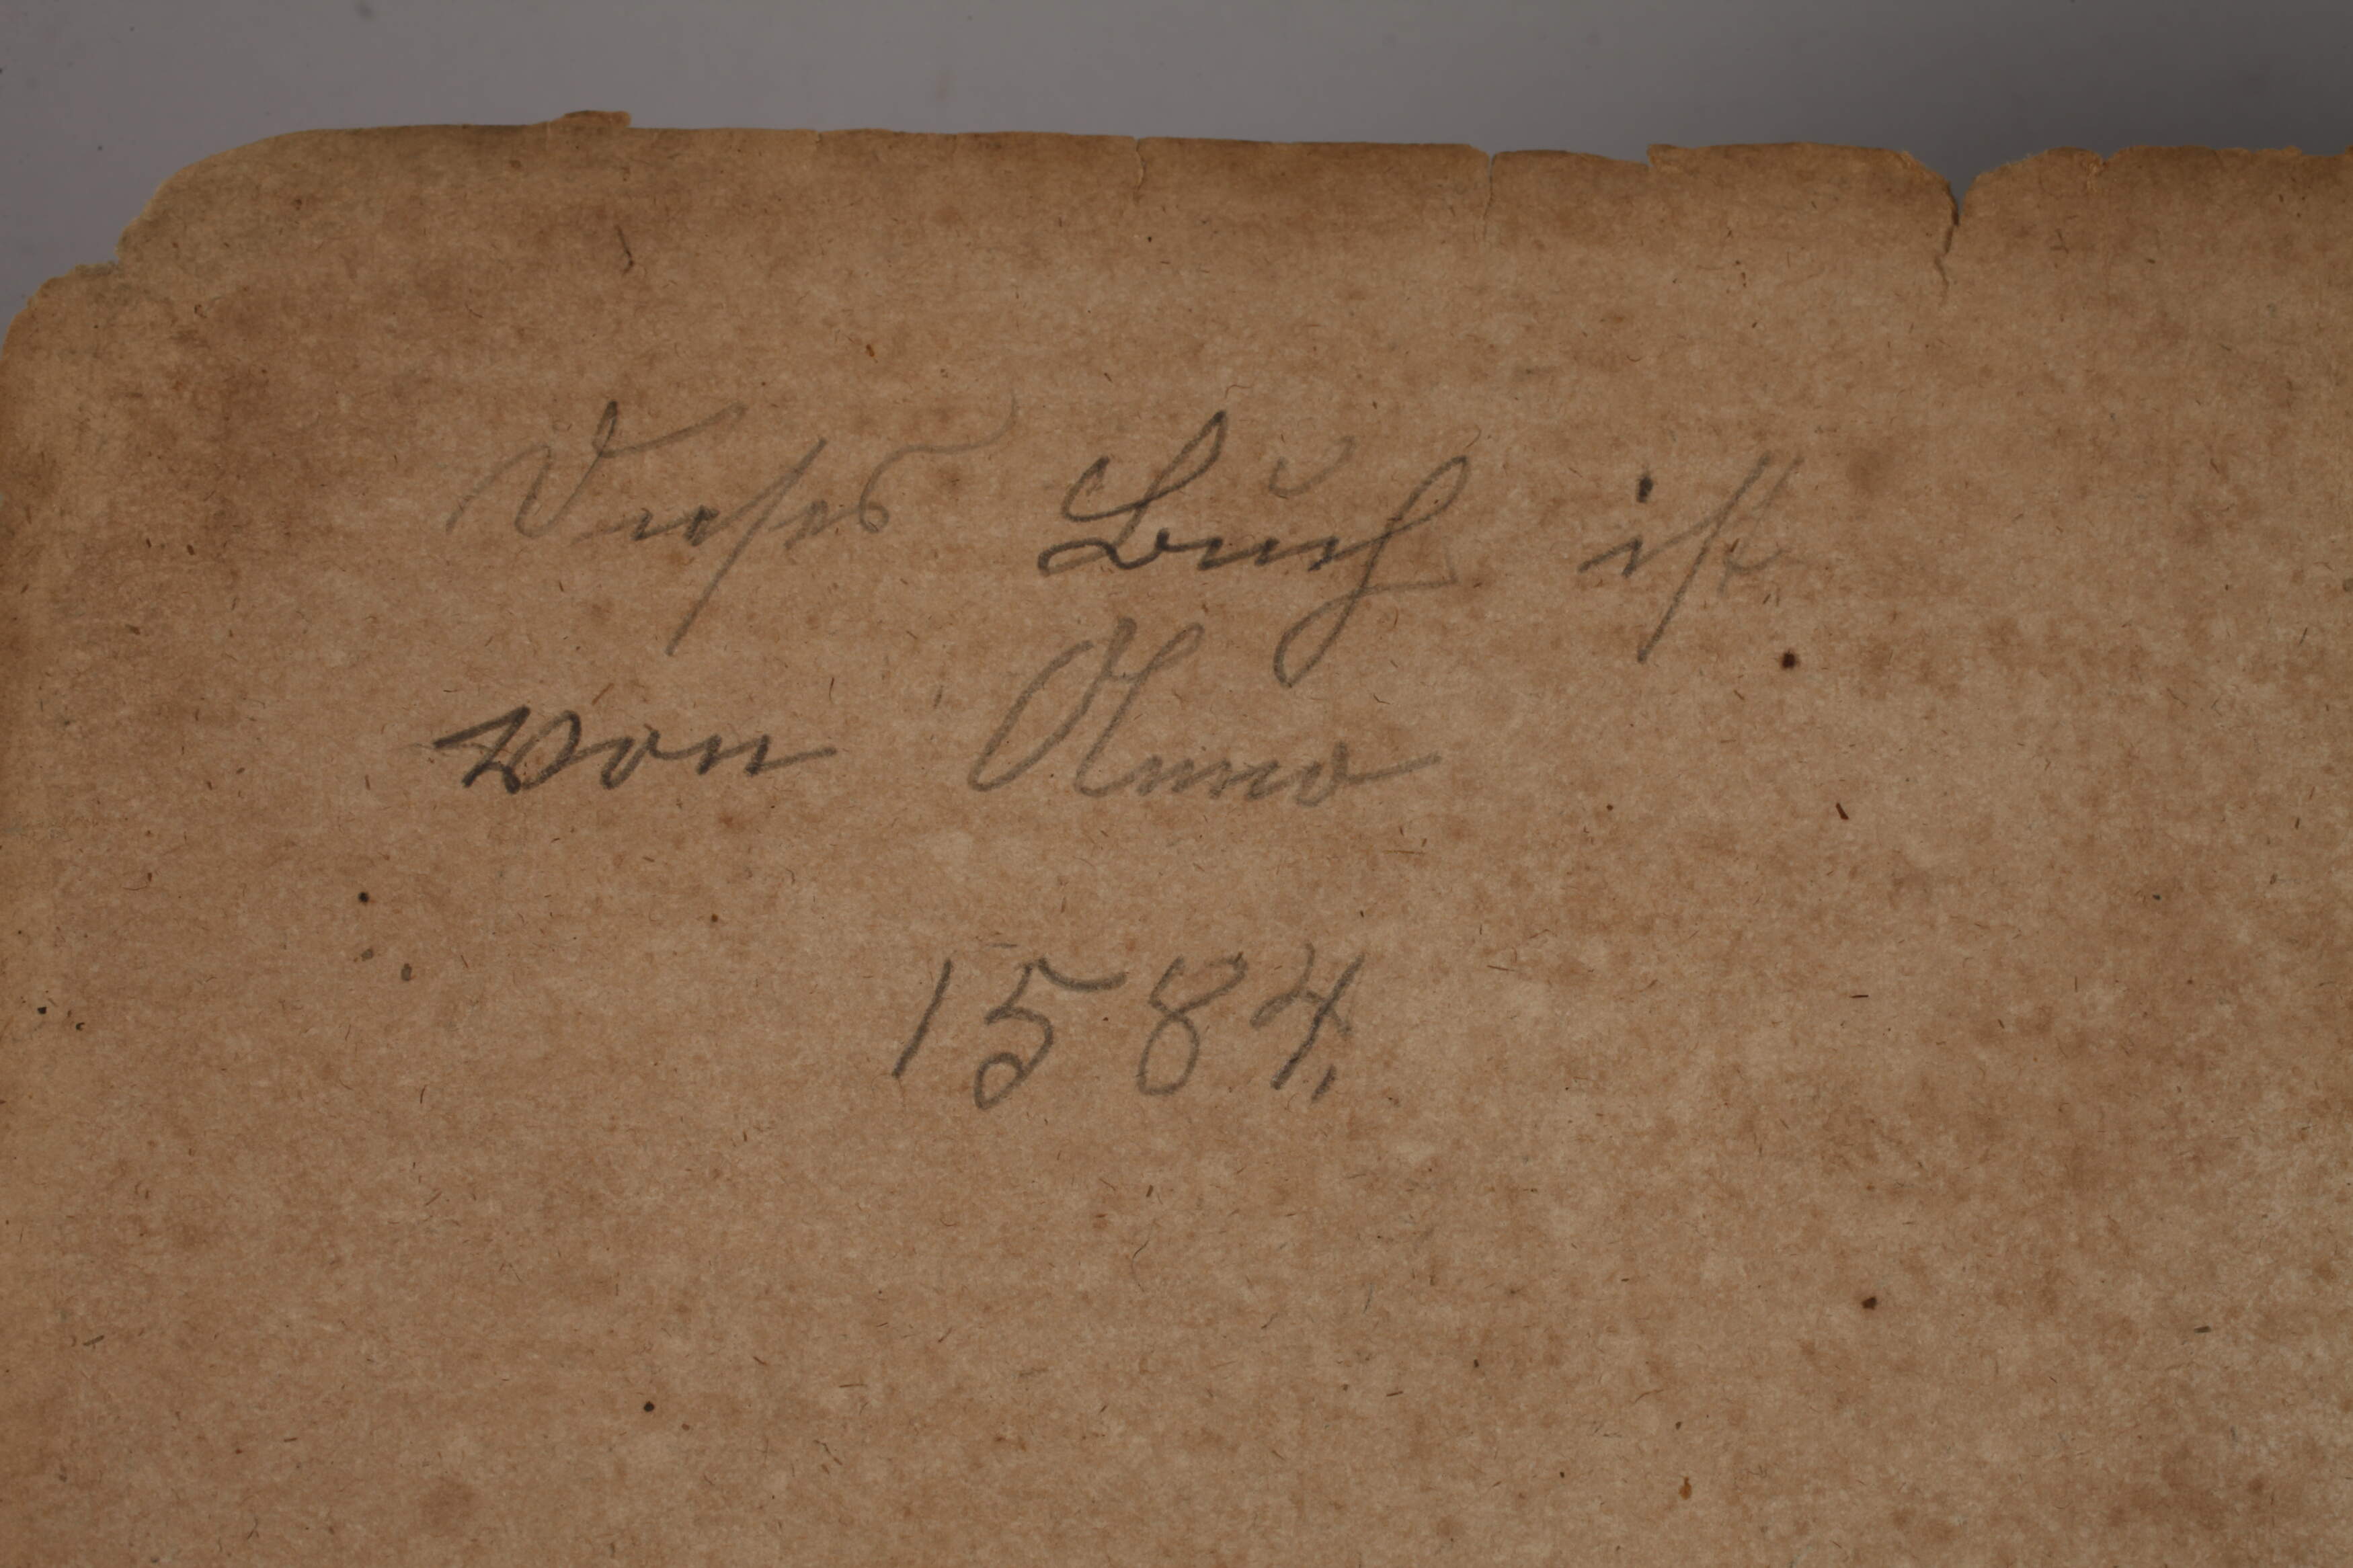 Dieses Buch ist
von Anno
1584.